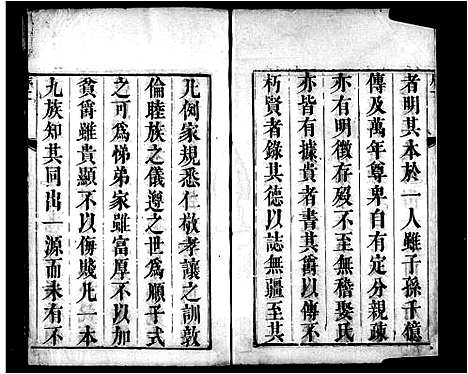 者明其本於一人雖子孫千億
傳及萬年尊卑自有定分親疎
亦有明徵存歿不至無稽娶氏
亦皆有據貴者書其爵以傳不
朽賢者錄其德以誌無疆至其
凡例家規悉仁敬孝讓之訓敦
倫睦族之儀遵之世為順子式
之可為悌弟家雖富厚不以加
貧爵雖貴顯不以侮賤凡一本
九族知其同出一源而未有不